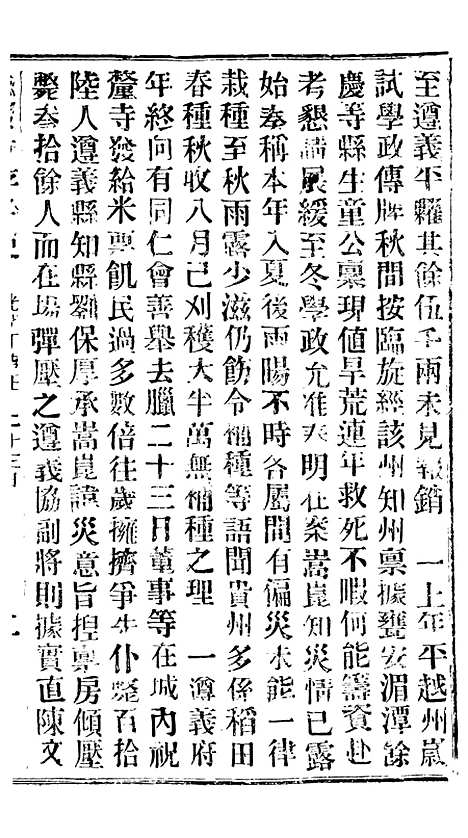 至遵義平糶其餘伍千兩未見報銷　一上年平越州歲
試學政傳牌秋間按臨旋經該州知州稟據甕安湄潭餘
慶等縣生童公稟現値旱荒連年救死不暇何能籌資赴
考懇請展緩至冬學政允准奏明在案嵩崑知災情已露
始奏稱本年入夏後雨暘不時各屬間有偏災未能一律
栽種至秋雨露少滋仍飭令補種等語聞貴州多係稻田
春種秋收八月已刈穫大半萬無補種之理　一遵義府
年終向有同仁會善舉去臘二十三日董事等在城內祝
釐寺發給米票飢民過多數倍往歲擁擠爭先仆斃百拾
陸人遵義縣知縣劉保厚承嵩崑諱災意旨捏稟房傾壓
斃叁拾餘人而在場彈壓之遵義協副將則據實直陳文
二十三